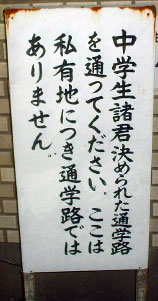 中学生諸君決められた通学路
を通ってください。ここは
私有地につき通学路では
ありません。